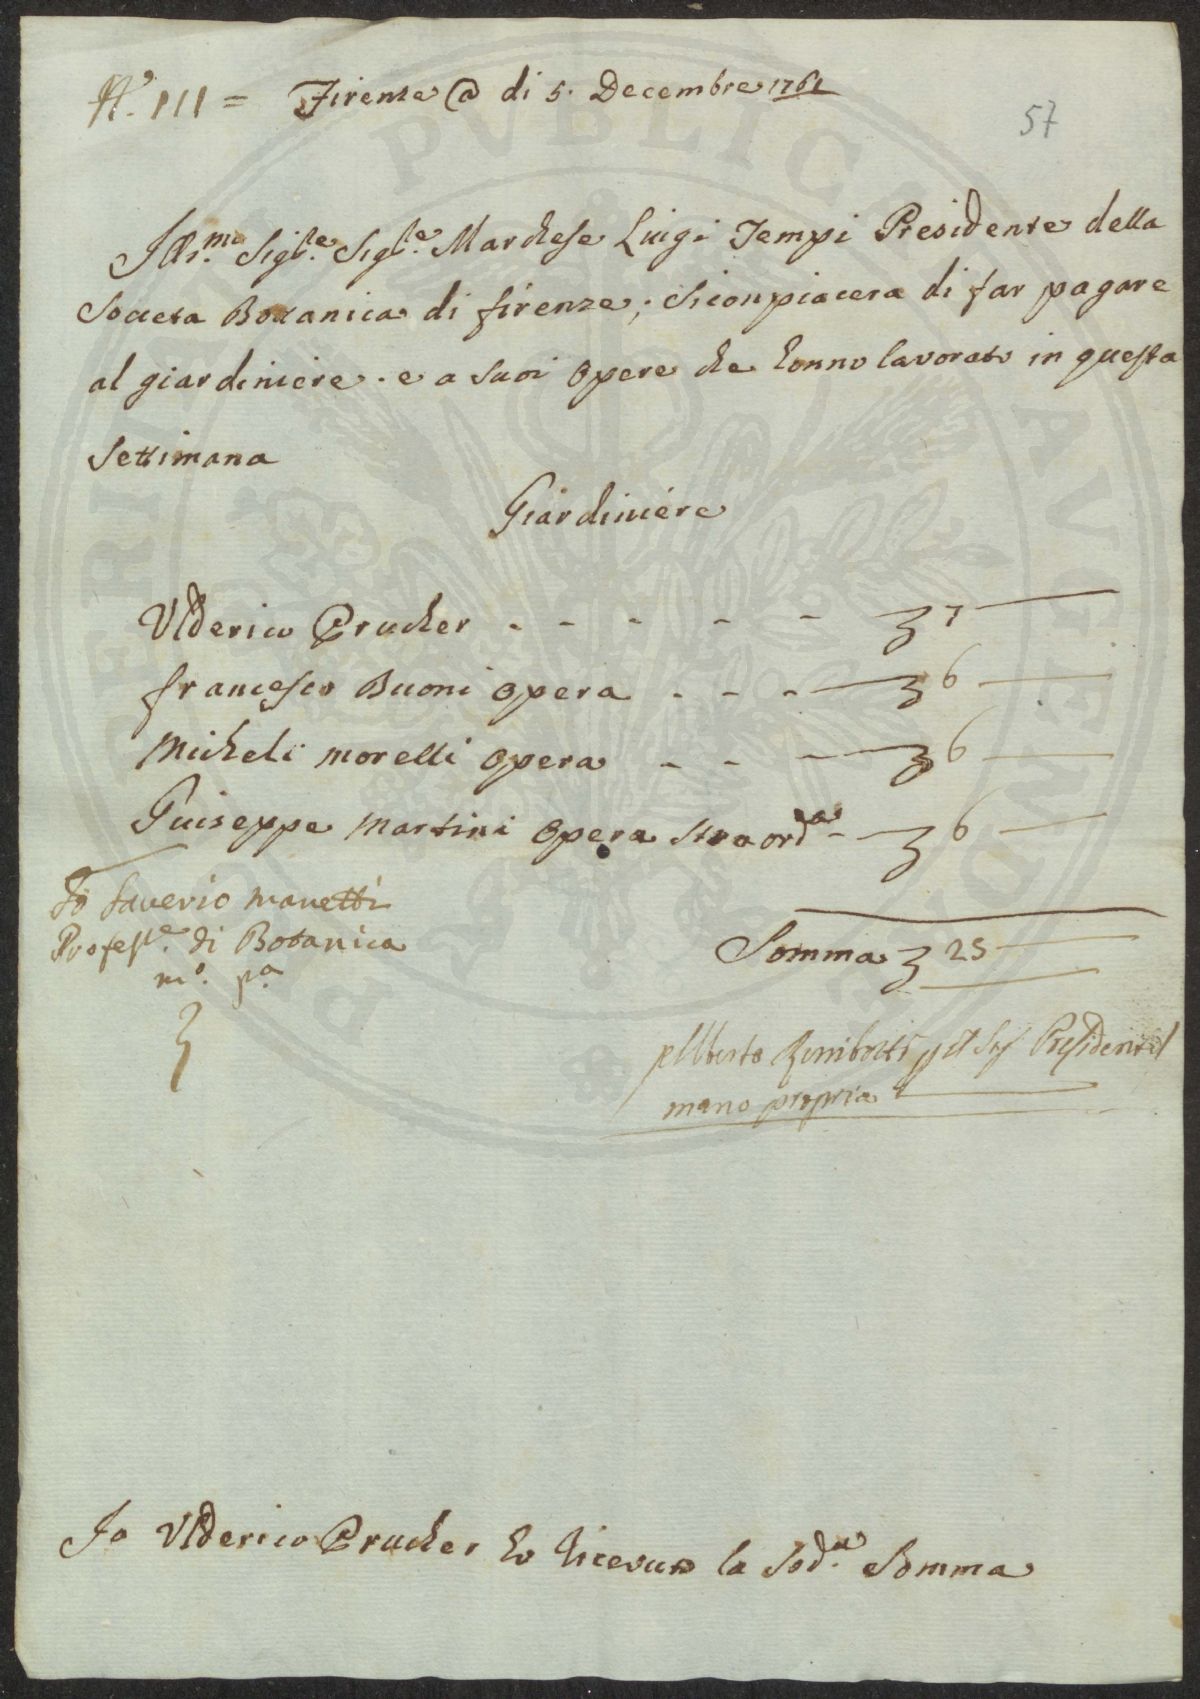 N.º III = Firenze @ di 5. Decembre 1761
57
Ill.mo Sig.re Sig.re Marchese Luigi Tempi Presidente della
Societa Botanica di firenze; Si conpiacera di far pagare
al giardiniere. e a suoi opere che hanno lavorato in questa
Settimana
Giardiniere
Ulderico Prucher - - - - - 7
francesco Buoni opera - - - 6
Micheli morelli opera - - - 6
Guiseppe martini opera straord.a - 6
Io Saverio Manetti
Profess.e di Botanica
m.o p.a
Somma 25
Uberto Rimbotti p il Sig Presidente
mano propria
Io Ulderico Prucher ho ricevuto la Sod.a Somma
PVBLICAE